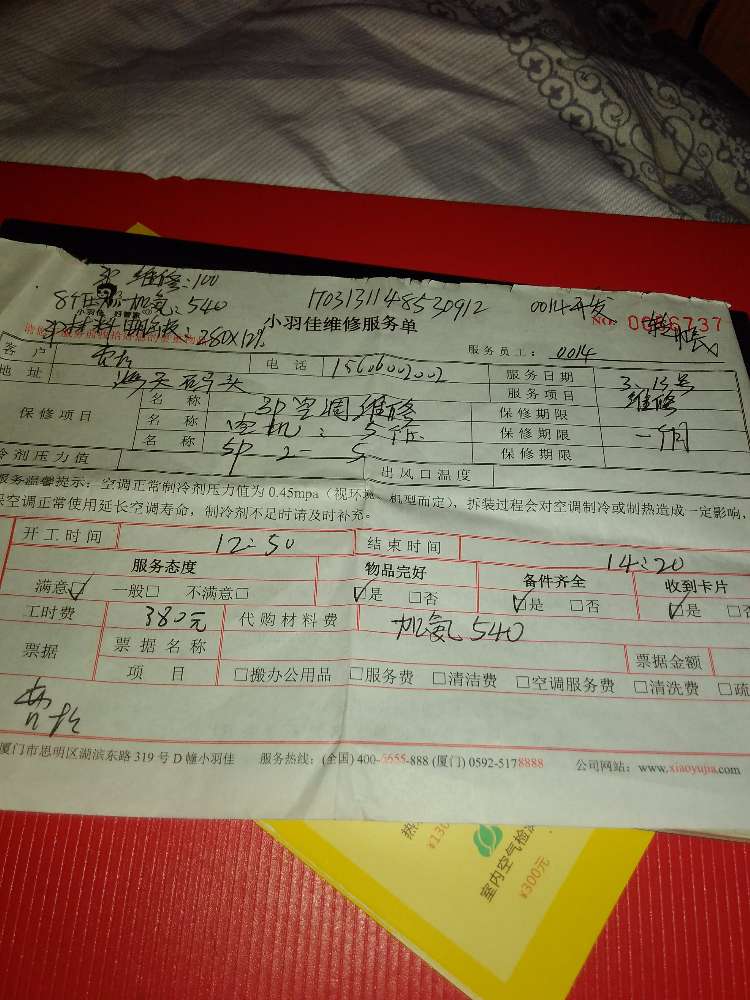 3P 维修:100
8个压 加氨:540
170313114853091​2
0014开发
小羽佳 好管家
280X12%
小羽佳维修服务单
NO: 0066737
转账
服务员工: 0014
客户
电话
服务日期 3.13号
地址
海天码头
服务项目 维修
保修项目
名 称 3P空调维修
保修期限
名 称
保修期限 一个月
名 称 5P-2-5
保修期限
冷剂压力值
出风口温度
服务温馨提示:空调正常制冷剂压力值为 0.45mpa(视环境、机型而定),拆装过程会对空调制冷或制热造成一定影响,
保空调正常使用延长空调寿命,制冷剂不足时请及时补充。
开工时间 12:50 结束时间 14:20
服务态度 物品完好 备件齐全 收到卡片
满意☑ 一般□ 不满意□ ☑是 □否 ☑是 □否 ☑是 □否
工时费 380元 代购材料费 加氨540
票据 票据名称 票据金额
项 目 □搬办公用品 □服务费 □清洁费 □空调服务费 □清洗费 □疏
厦门市思明区湖滨东路 319 号 D 幢小羽佳 服务热线:(全国) 400-6655-888 (厦门) 0592-5178888 公司网站:www.xiaoyujia.com
¥130
室内空气检
¥300元